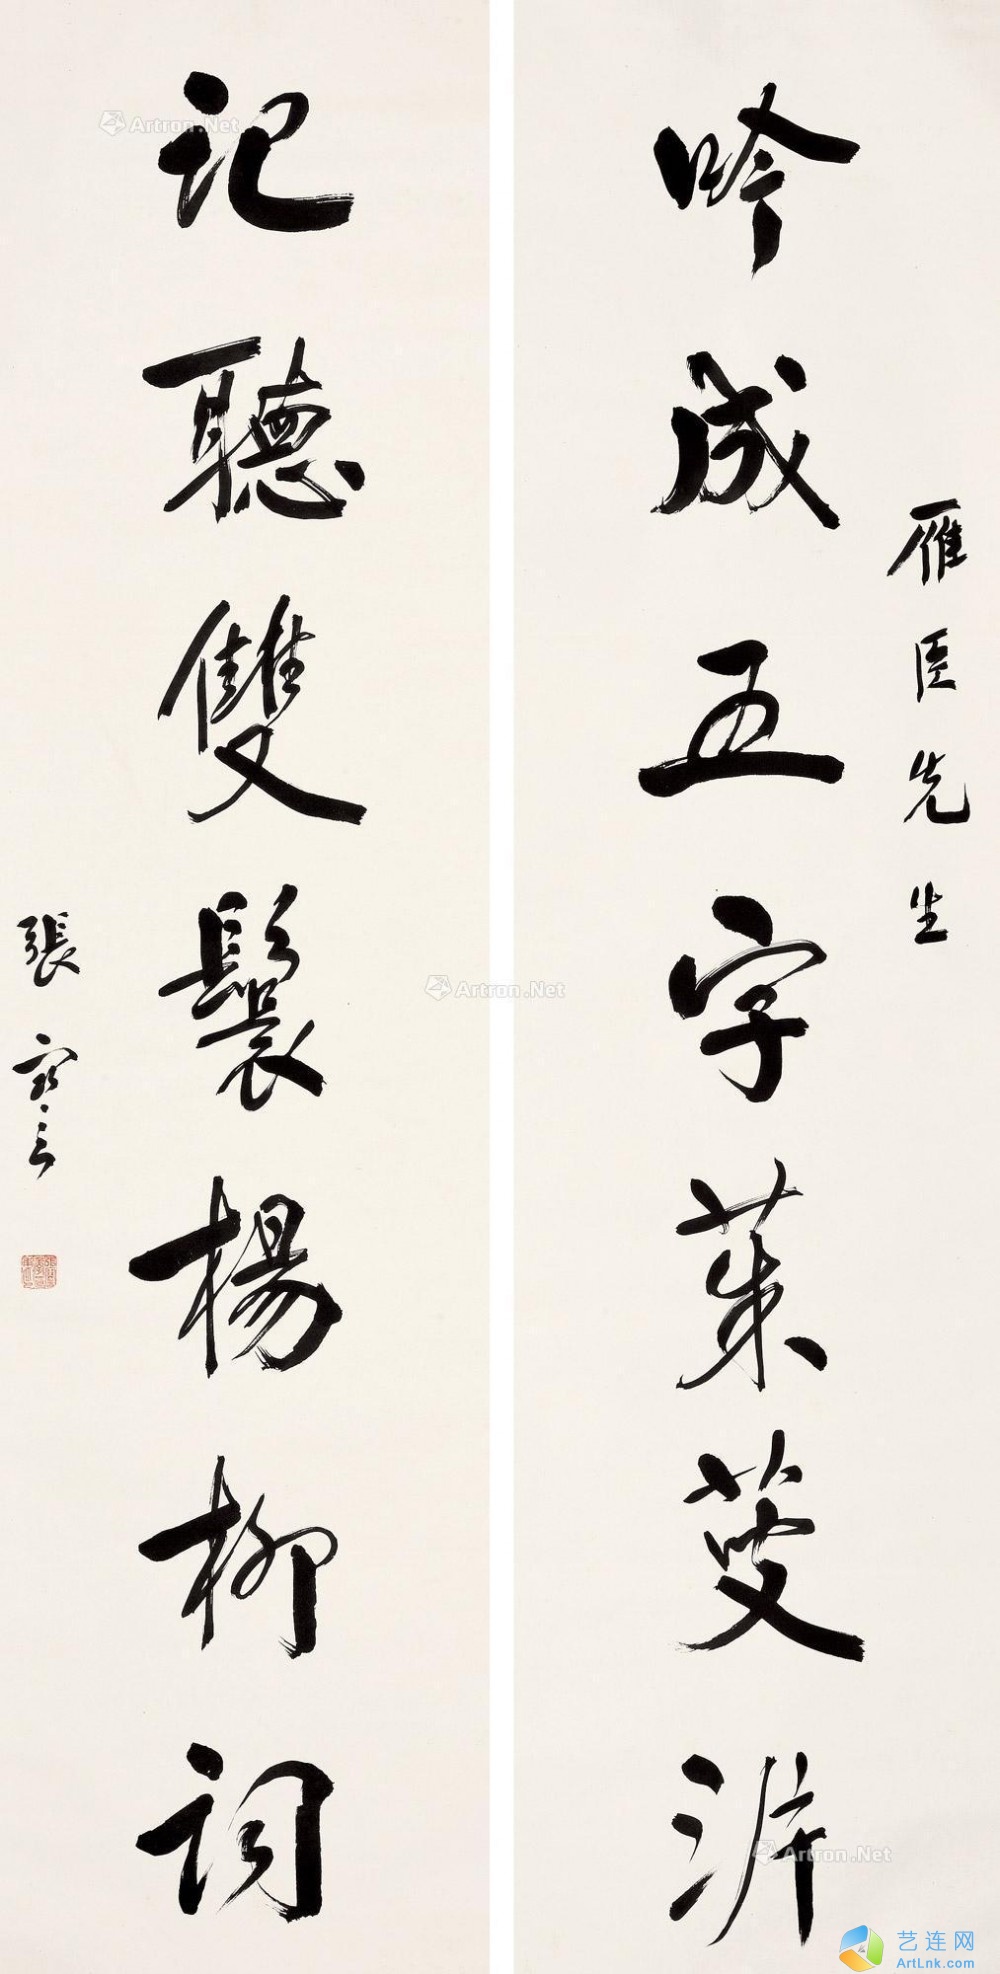 雁臣先生
吟成五字茱萸沜
記聽雙鬟楊柳詞
張謇
Artron.Net
Artron.Net
Artron.Net
艺连网
ArtLnk.com